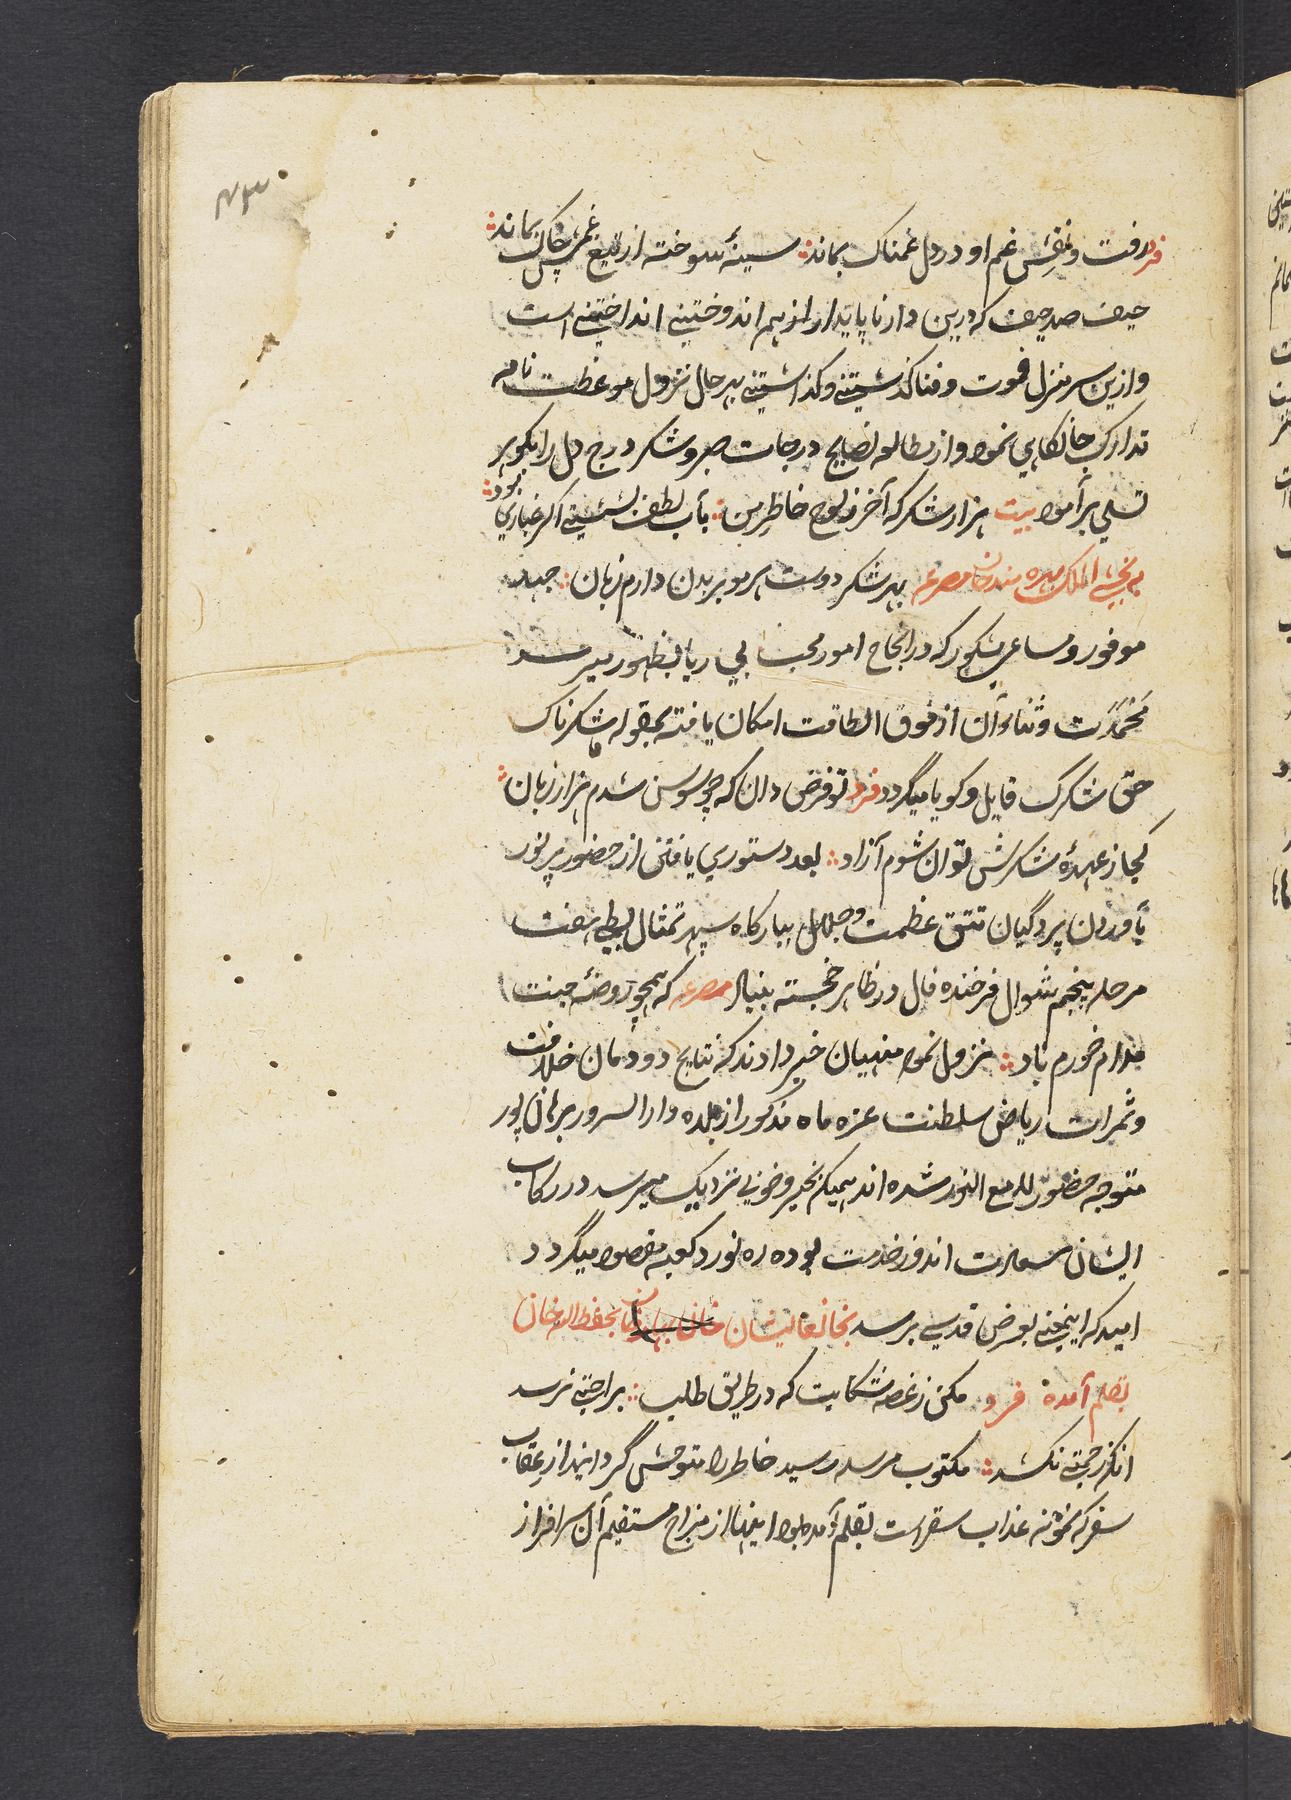 ۷۳
فرد رفت و نقش غم او در دل غمناک بماند سینهٔ سوخته از تیغ غمش چاک بماند
حیف صد حیف که درین دار ناپایدار از هم اندوختنی انداختنی است
و ازین سر منزل فوت و فنا گذشتنی و گذاشتنی بهر حال نزول موعظت نامه
تدارک جانکاهی نموده و از مطالعه نصایح درجات صبر و شکر درج دل را بگوهر
تسلی برآموده بیت هزار شکر که آخر ز لوح خاطر من بآب لطف بشستی اگر غباری بود
به بخشی الملک بهره مند خان مصرعه بهر شکر دوست هر مو بر بدن دارم زبان جهد
موفور و مساعی مشکور که در انجاح امور محب بی ریا بظهور میرسد
محمدت و ثناء آن از فوق الطاقت امکان یافته بمقوله ما شکرناک
حق شکرک قایل و گویا میگردد فرد تو فرض دان که چو سوسن شدم هزار زبان
کجا ز عهدهٔ شکرش توان شوم آزاد بعد دستوری یافتن از حضور پر نور
بآوردن پردگیان تتق عظمت و جلال ببارگاه سپهر تمثال بطی هفت
مرحله پنجم شوال فرخنده فال در ظاهر خجسته بنیاد مصرعه که همچو روضهٔ جنت
مدام خورم باد نزول نموده منهیان خبر دادند که نتایج دودمان خلافت
و ثمرات ریاض سلطنت غره ماه مذکور از بلده دارالسرور برهانپور
متوجه حضور لامع النور شده اند همینکه بخیر و خوبی نزدیک میرسد در رکاب
ایشان سعادت اندوز خدمت بوده ره نورد کعبه مقصود میگردد
امید که اینمعنی بعرض قدسی برسد بخانعالیشان بحفظ الله خان
بقلم آمده فرد مکن ز غصه شکایت که در طریق طلب براحتی نرسد
آنکه زحمتی نکشد مکتوب مرسله رسید خاطر را متوحش گردانید از عقاب
سفر که نمونه عذاب سقر است بقلم آمده بود اینها از مزاج مستقیم آن سرافراز